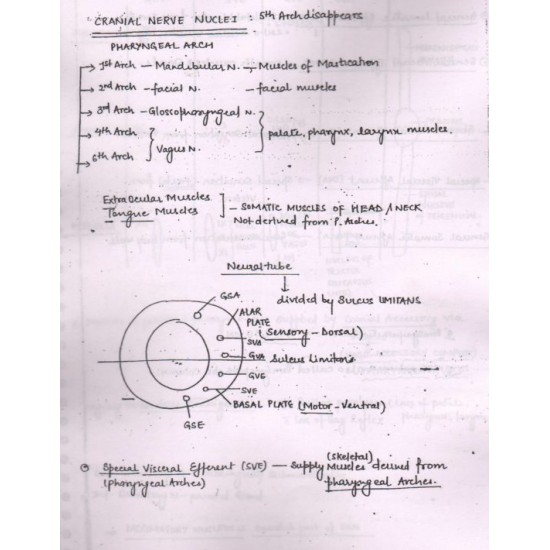 CRANIAL NERVE NUCLEI : 5th Arch disappears
PHARYNGEAL ARCH
1st Arch — Mandibular N. — Muscles of Mastication
2nd Arch — facial N. — facial muscles
3rd Arch — Glossopharyngeal N.
4th Arch
Vagus N.
6th Arch
palate, pharynx, larynx muscles.
Extra Ocular Muscles
Tongue Muscles
— SOMATIC MUSCLES OF HEAD / NECK
Not derived from P. Arches.
Neural tube
divided by SULCUS LIMITANS
GSA
ALAR
PLATE (Sensory - Dorsal)
SVA
GVA Sulcus Limitans
GVE
SVE
BASAL PLATE (Motor - Ventral)
GSE
Special Visceral Efferent (SVE) — Supply (Skeletal) Muscles derived from
(Pharyngeal Arches) pharyngeal Arches.